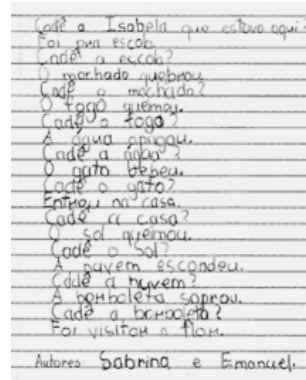 Cadê a Isabela que estava aqui?
Foi pra escola.
Cadê a escola?
O machado quebrou.
Cadê o machado?
O fogo queimou.
Cadê o fogo?
A água apagou.
Cadê a água?
O gato bebeu.
Cadê o gato?
Entrou na casa.
Cadê a casa?
O sol queimou.
Cadê o sol?
A nuvem escondeu.
Cadê a nuvem?
A borboleta soprou.
Cadê a borboleta?
Foi visitar a flor.
Autores: Sabrina e Emanuel.